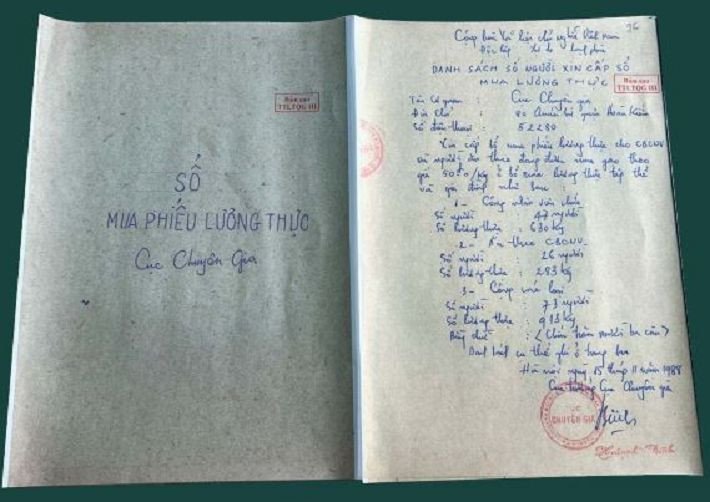 Bản sao
TTLTQG III
SỔ
MUA PHIẾU LƯƠNG THỰC
Cục Chuyên Gia
96
Cộng hòa Xã hội chủ nghĩa Việt Nam
Độc lập Tự do
DANH SÁCH SỐ NGƯỜI XIN CẤP SỔ
MUA LƯƠNG THỰC
Bản sao
TTLTQG III
Tên Cơ quan : Cục Chuyên gia
Địa chỉ : 80 quận Hoàn Kiếm
Số điện thoại : 52280
Xin cấp sổ mua phiếu lương thực cho CBCNV
và người ăn theo đang gạo theo
giá /kg lương thực tập thể
và gia đình như sau :
1 - Công nhân viên chức
Số người : 47 người
Số lương thực : 630 kg
2 - Ăn theo CBCNV
Số người : 26 người
Số lương thực : 283 kg
3 - Cộng
Số người : 73 người
Số lương thực : 913 kg
Bằng chữ : <Chín trăm mười ba cân>
Danh sách cụ thể ghi ở trang
Hà Nội ngày 15 tháng 11 năm 1988
Cục trưởng Cục Chuyên gia
CỤC
CHUYÊN GIA